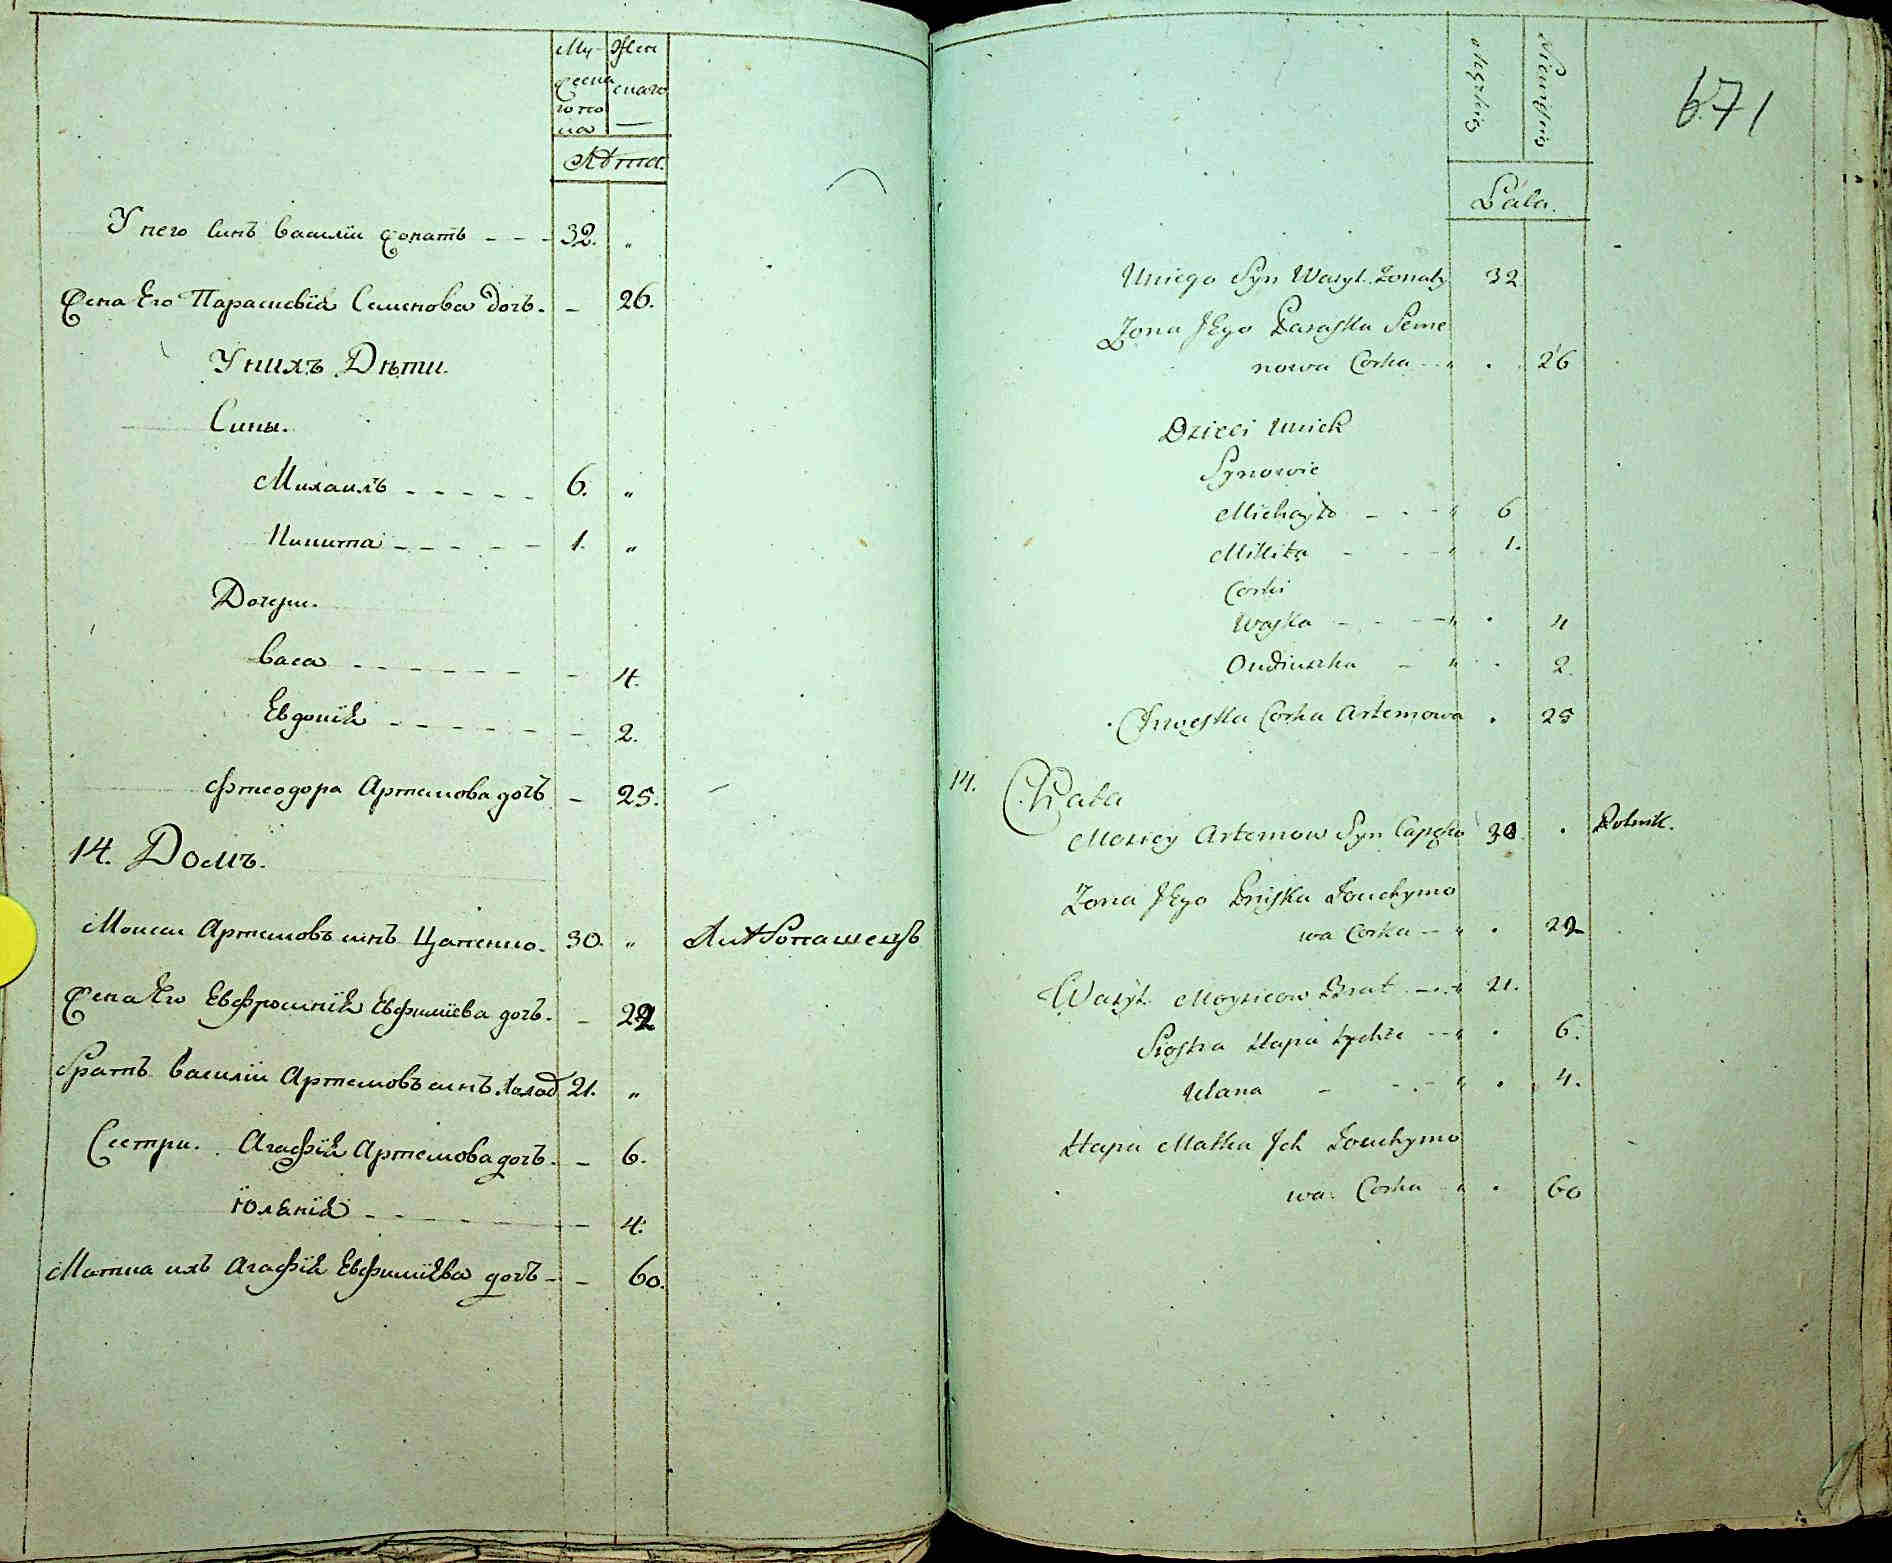 Му-
жеска
го по
ла
Жен
скаго
Лѣта.
У него синъ Василіи жонатъ - - - 32. "
Жена Его Парасковія Семенова дочъ. - 26.
У нихъ Дѣти.
Сины.
Михаилъ - - - - - 6. "
Никита - - - - - 1. "
Дочери.
Васа - - - - - - - 4.
Евдокія - - - - - - 2.
Фтеодора Артемова дочъ - 25.
14. Домъ.
Моисеи Артемовъ синъ Цапенко. 30. "
Жена Его Евфросинія Евфиміева дочъ. - 22
Братъ Василіи Артемовъ синъ Холод 21. "
Сестри. Агафія Артемова дочъ. - 6.
Юлянія - - - - 4.
Матка ихъ Агафія Евфиміева дочъ - - 60.
671
Męzkiey
Zienskiey
Lata.
Uniego Syn Wasyl Zonaty 32
Zona JEgo Paraska Seme
nowa Corka - " . 26
Dzieci Unich
Synowie
Michayło - - - " 6
Mikita - - - " 1.
Corki
Waska - - - - " . 4
Oudiuszka - " . 2.
Chweska Corka Artemowa . 25
14. Chata
Moziey Artemow Syn Capęko 30. . Rolnik.
Zona JEgo Pryska Jouchymo
wa Corka - " . 22
Wasyl Moyzieow Brat - - " 21.
Siostra Hapa tychże - - " . 6.
Ulana - - - " . 4.
Hapa Matka Ich Jouchymo
wa Corka - " . 60